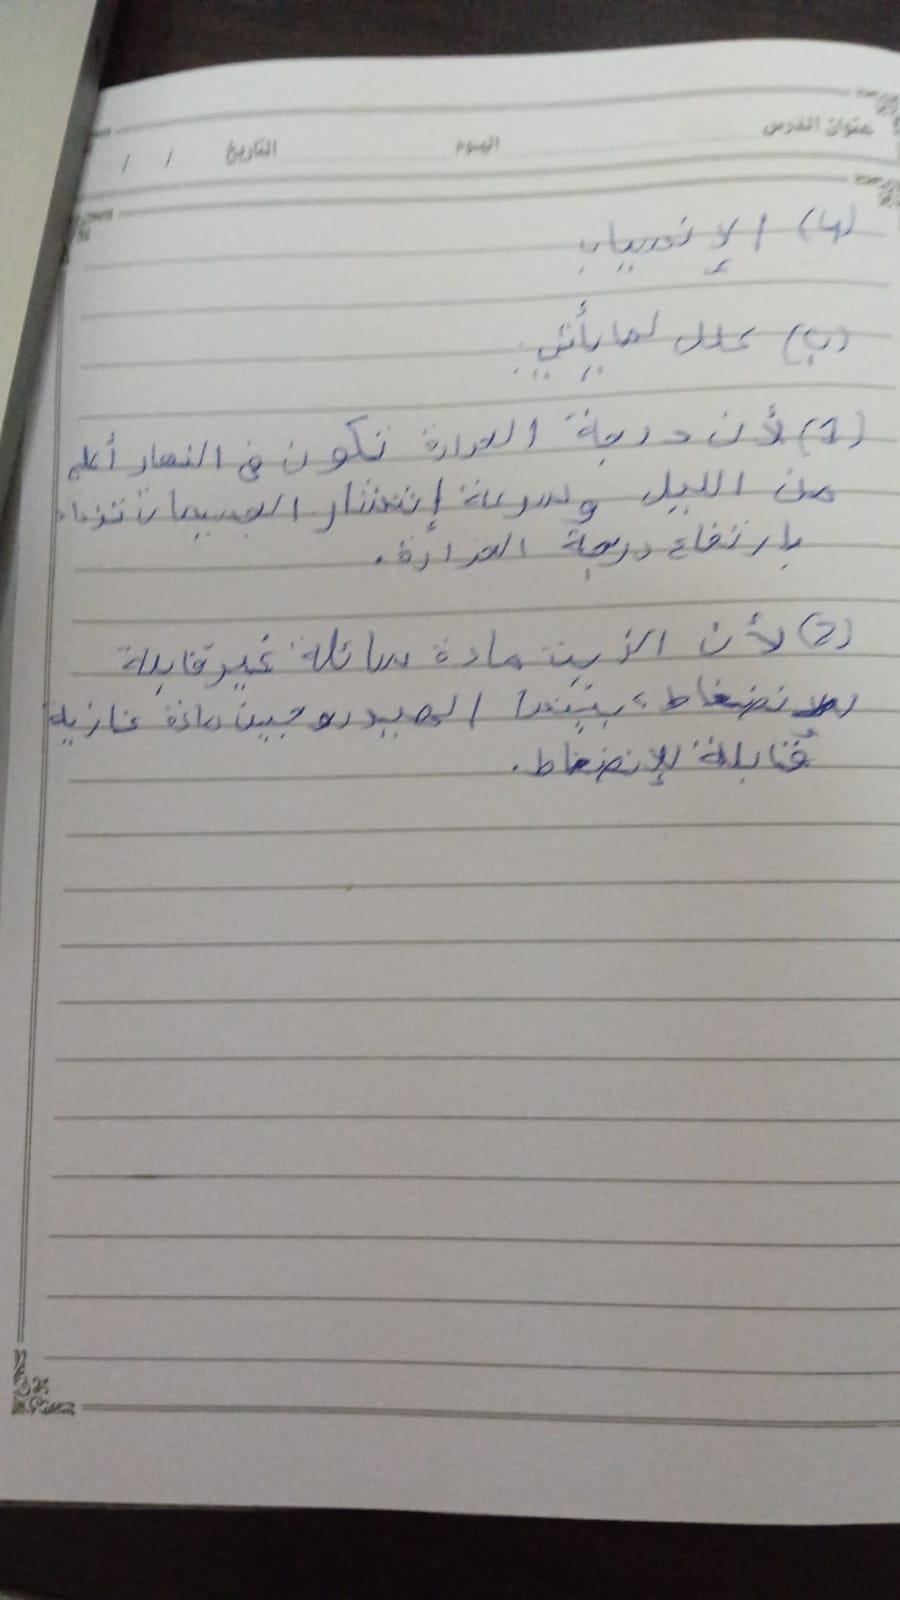 عنوان الدرس اليوم التاريخ / /
(4) الإنسياب
(ب) علل لما يأتي:
(1) لأن درجة الحرارة تكون في النهار أعلى
من الليل وسرعة إنتشار الجسيمات تزداد
بإرتفاع درجة الحرارة.
(2) لأن الزيت مادة سائلة غير قابلة
للإنضغاط، بينما الهيدروجين مادة غازية
قابلة للإنضغاط.